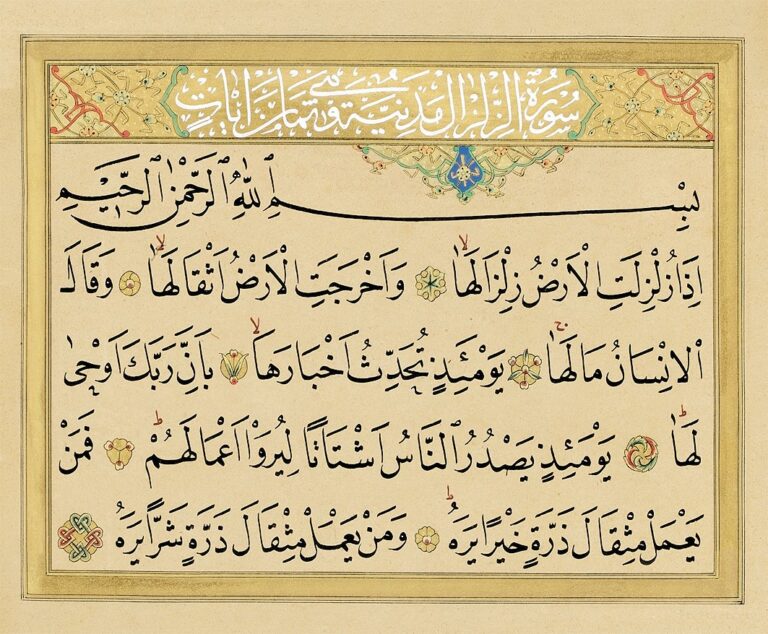 سُورَةُ الزِّلْزَالِ مَدَنِيَّةٌ وَهِىَ ثَمَانُ اٰيَاتٍ
بِسْمِ اللّٰهِ الرَّحْمٰنِ الرَّحِيمِ
اِذَا زُلْزِلَتِ الْاَرْضُ زِلْزَالَهَا وَاَخْرَجَتِ الْاَرْضُ اَثْقَالَهَا وَقَالَ
الْاِنْسَانُ مَالَهَا يَوْمَئِذٍ تُحَدِّثُ اَخْبَارَهَا بِاَنَّ رَبَّكَ اَوْحٰى
لَهَا يَوْمَئِذٍ يَصْدُرُ النَّاسُ اَشْتَاتًا لِيُرَوْا اَعْمَالَهُمْ فَمَنْ
يَعْمَلْ مِثْقَالَ ذَرَّةٍ خَيْرًا يَرَهُ وَمَنْ يَعْمَلْ مِثْقَالَ ذَرَّةٍ شَرًّا يَرَهُ